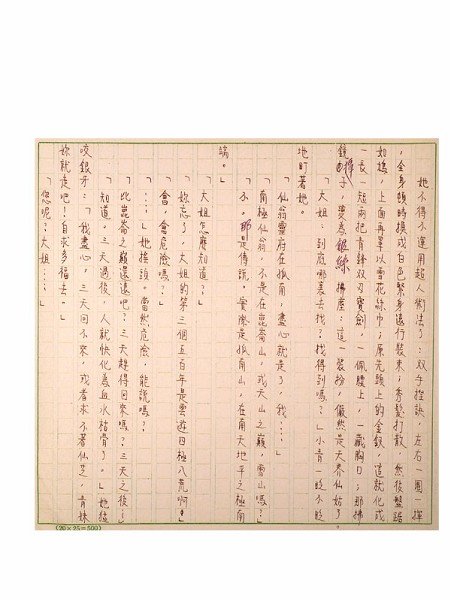 她不得不運用超人術法了：双手捏訣，左右一圈一揮
，全身頓時換成白色緊身遠行裝束；秀髮打散，然後盤踞
如樁，上面再罩以雪花絲巾；原先頭上的金釵，這就化成
一長一短兩把青鋒双刃寶劍，一佩腰上，一藏胸口；那拂
鏡撢子，變為銀絲拂塵；這一裝扮，儼然是天界仙姑了
「大姐，到底哪裏去找？找得到嗎？」小青一眨不眨
地盯著她。
「仙翁靈府在抓南，盡心就是了，我⋯⋯」
「南極仙翁，不是在崑崙山，或天山之巔，雪山嗎？」
「不，那是傳說。實際是抓南山，在南天地平之極南
端。」
「大姐怎麼知道？」
「妳忘了，大姐的第三個五百年是雲遊四極八荒啊。」
「會，會危險嗎？」
「⋯⋯」她搖頭。當然危險，能說嗎？
「比崑崙之巔還遠吧？三天趕得回來嗎？三天之後」
「知道。三天過後，人就快化為血水枯骨了。」她猛
咬銀牙：「我盡心，三天回不來，或者求不著仙芝，青妹
妳就走吧！自求多福去。」
「您呢？大姐⋯⋯」
(20×25=500)